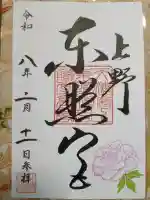 上野
東照宮
令和
八年二月十一日参拝